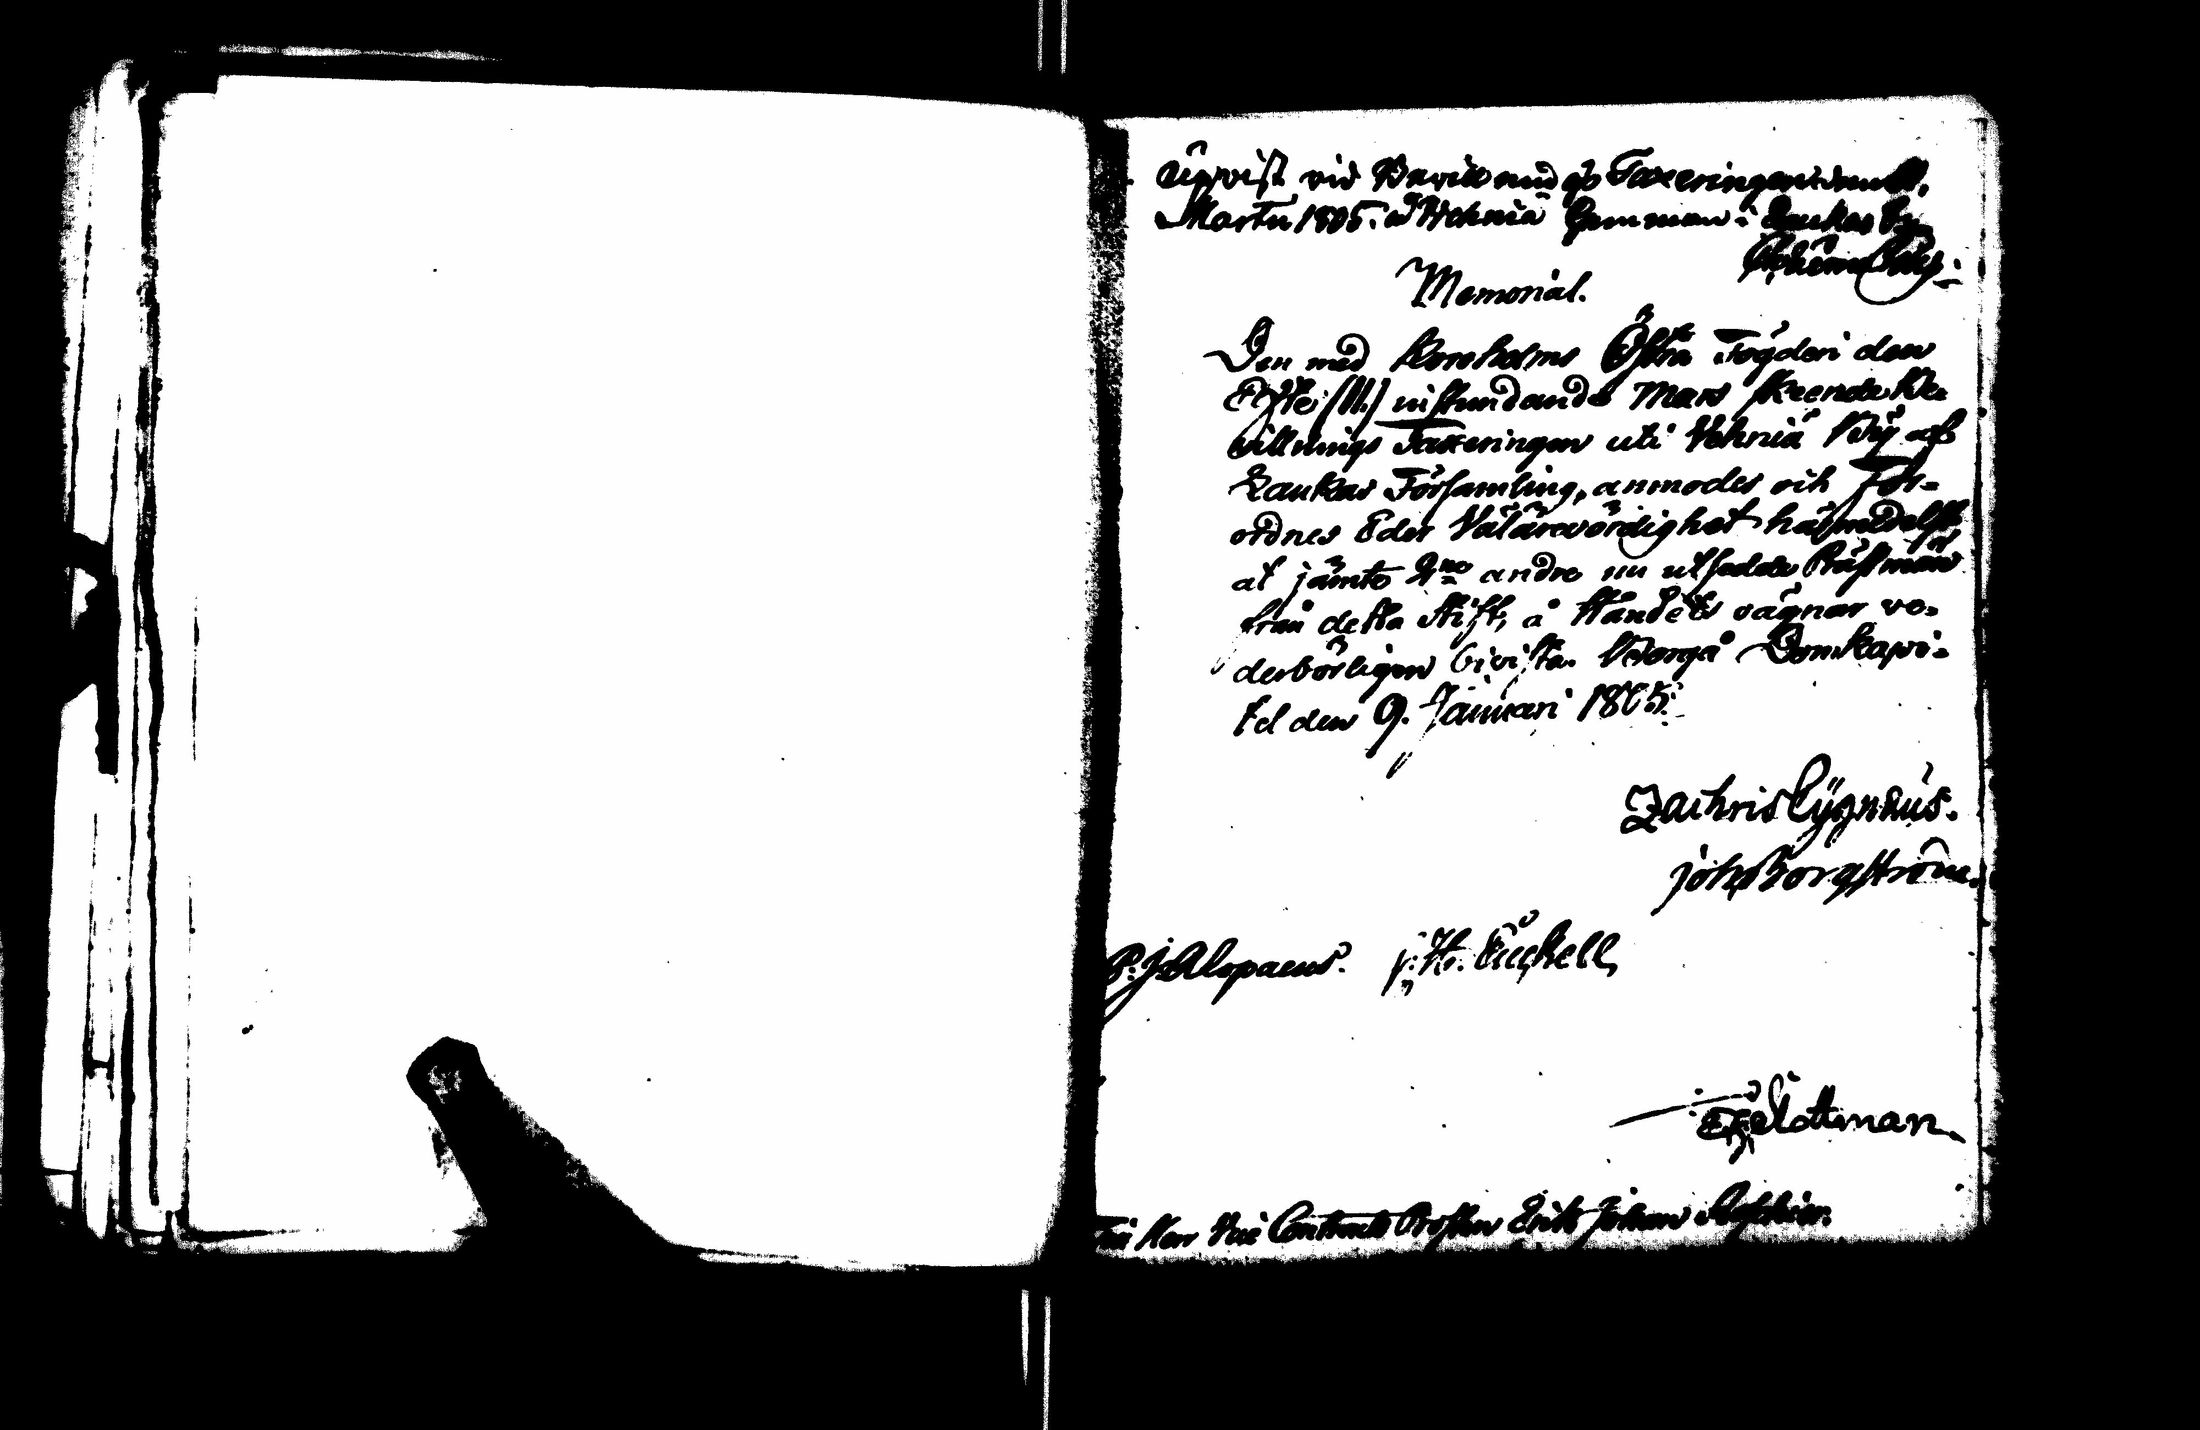 Upvist vid Bevillnings Taxeringen den 11.
Martii 1805. å Wehniä Hemman i Laukas by
Memorial.
Den med Kornholms Östra Fögderi den
Elfte (11.) nistundande Mars skeende Be-
villnings Taxeringen uti Vehniä By af
Laukas Församling, anmodes och För-
ordnes Eder Välärevördighet härmedelst
at jämte 2ne andre nu utsedde Prästmän
från detta Stift, å Ståndets vägnar ve-
derbörligen bivista. Borgå Domkapi-
tel den 9. Januari 1805.
Zachris Cygnæus.
Joh. Borgström.
P. J. Alopaeus. J. H. Fuchell
Slottman
Till Herr Vice Contracts Prosten Erik Johan